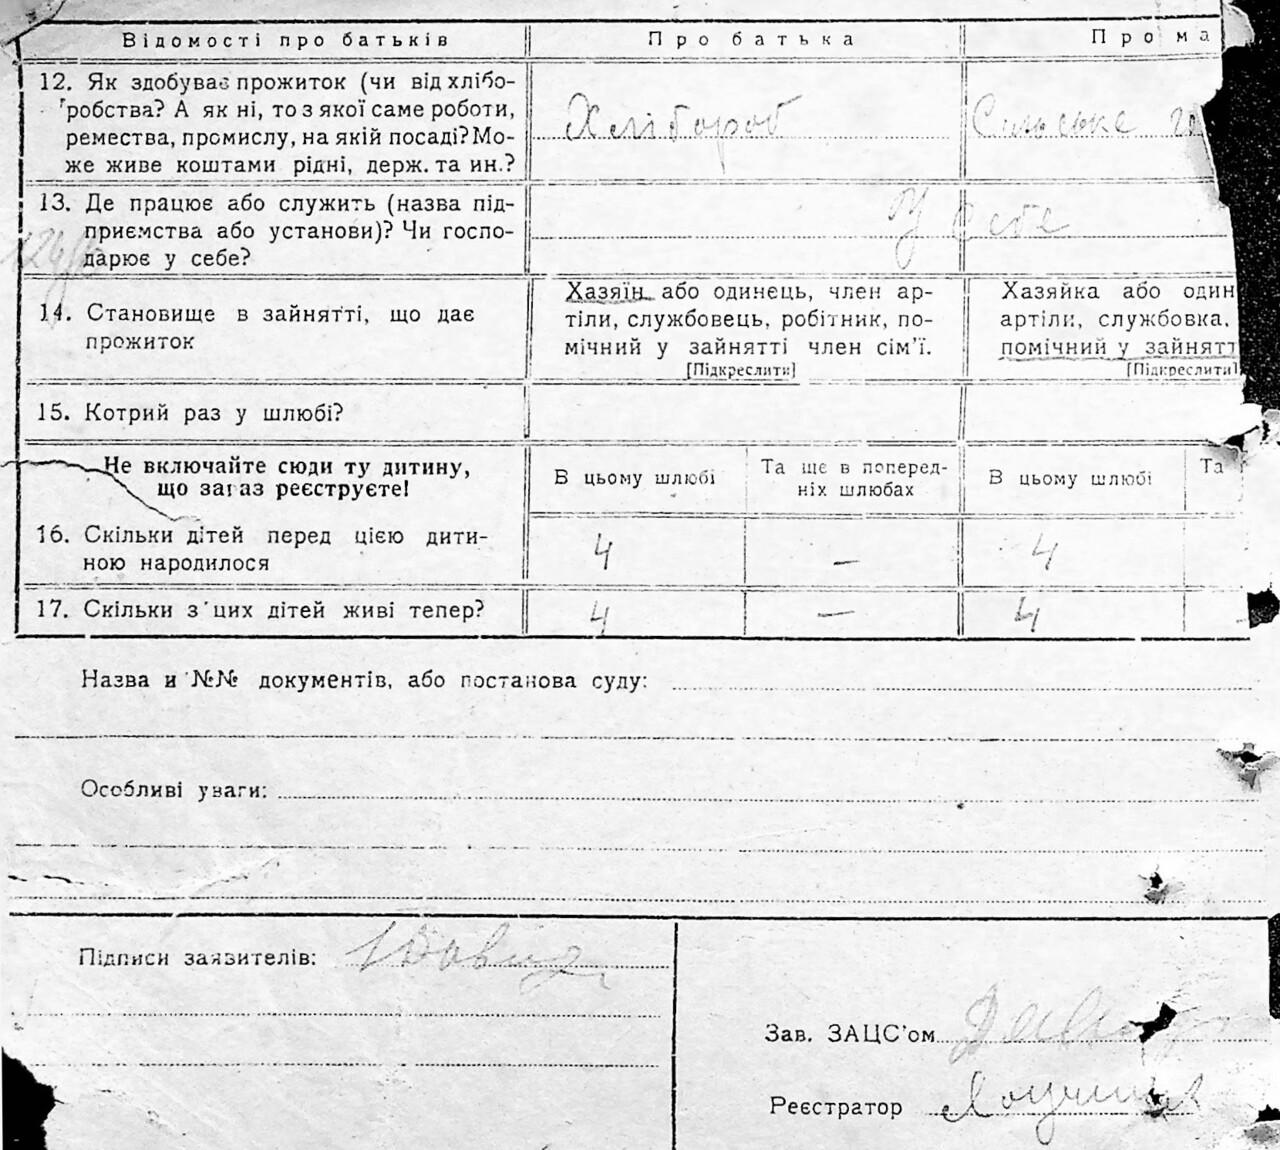 Відомості про батьків
Про батька
Про ма
12. Як здобуває прожиток (чи від хлібо-
робства? А як ні, то з якої саме роботи,
ремества, промислу, на якій посаді? Мо-
же живе коштами рідні, держ. та ин.?
Хлібороб
Сильське го
13. Де працює або служить (назва під-
приємства або установи)? Чи госпо-
дарює у себе?
У себе
14. Становище в зайнятті, що дає
прожиток
Хазяїн або одинець, член ар-
тіли, службовець, робітник, по-
мічний у зайнятті член сім'ї.
[Підкреслити]
Хазяйка або один
артіли, службовка,
помічний у зайнятт
[Підкреслити]
15. Котрий раз у шлюбі?
Не включайте сюди ту дитину,
що зараз реєструєте!
В цьому шлюбі
Та ще в поперед-
ніх шлюбах
В цьому шлюбі
Та
16. Скільки дітей перед цією дити-
ною народилося
4 — 4
17. Скільки з цих дітей живі тепер?
4 — 4
Назва и №№ документів, або постанова суду:
Особливі уваги:
Підписи заявителів:
Зав. ЗАЦС'ом
Реєстратор